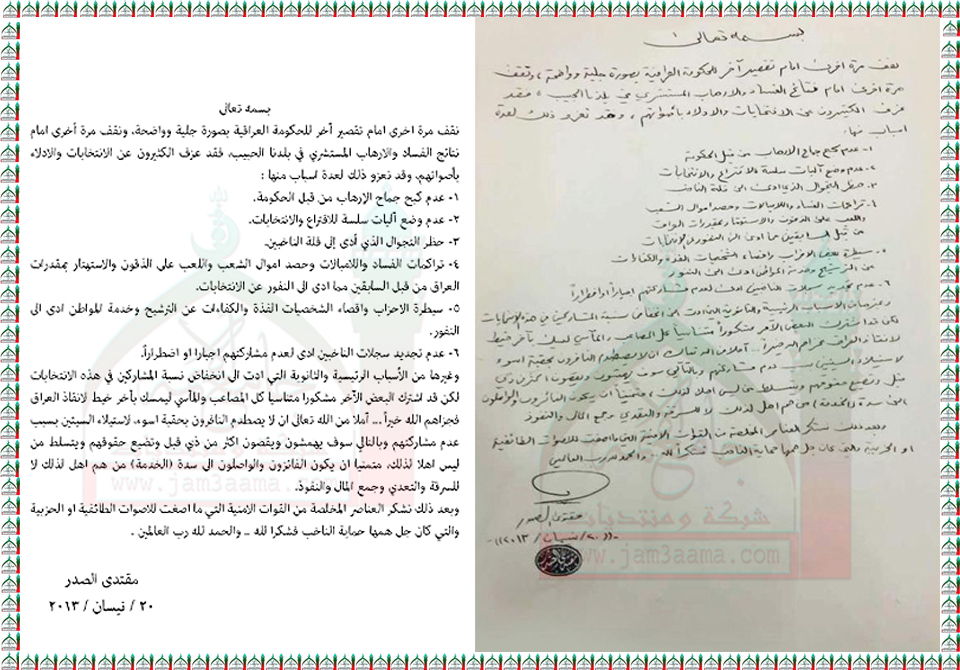 بسمه تعالى
نقف مرة اخرى امام تقصير آخر للحكومة العراقية بصورة جلية وواضحة، ونقف مرة أخرى امام
نتائج الفساد والارهاب المستشري في بلدنا الحبيب، فقد عزف الكثيرون عن الانتخابات والادلاء
بأصواتهم، وقد نعزو ذلك لعدة اسباب منها :
١- عدم كبح جماح الإرهاب من قبل الحكومة.
٢- عدم وضع آليات سلسة للاقتراع والانتخابات.
٣- حظر التجوال الذي أدى إلى قلة الناخبين.
٤- تراكمات الفساد واللامبالات وحصد اموال الشعب واللعب على الذقون والاستهتار بمقدرات
العراق من قبل السابقين مما ادى الى النفور عن الانتخابات.
٥- سيطرة الاحزاب واقصاء الشخصيات الفذة والكفاءات عن الترشيح وخدمة المواطن ادى الى
النفور.
٦- عدم تجديد سجلات الناخبين ادى لعدم مشاركتهم اجبارا او اضطراراً.
وغيرها من الأسباب الرئيسية والثانوية التي ادت الى انخفاض نسبة المشاركين في هذه الانتخابات
لكن قد اشترك البعض الآخر مشكورا متناسياً كل المصاعب والمآسي ليمسك بأخر خيط لانقاذ العراق
فجزاهم الله خيراً... آملا من الله تعالى ان لا يصطدم النافرون بحقبة اسوء، لاستيلاء السيئين بسبب
عدم مشاركتهم وبالتالي سوف يهمشون ويقصون اكثر من ذي قبل وتضيع حقوقهم ويتسلط من
ليس اهلا لذلك، متمنيا ان يكون الفائزون والواصلون الى سدة (الخدمة) من هم اهل لذلك لا
للسرقة والتعدي وجمع المال والنفوذ.
وبعد ذلك نشكر العناصر المخلصة من القوات الامنية التي ما اصغت للاصوات الطائفية او الحزبية
والتي كان جل همها حماية الناخب فشكرا لله .. والحمد لله رب العالمين .
مقتدى الصدر
٢٠ / نيسان / ٢٠١٣
بسمه تعالى
نقف مرة اخرى امام تقصير آخر للحكومة العراقية بصورة جلية وواضحة، ونقف
مرة اخرى امام نتائج الفساد والارهاب المستشري في بلدنا الحبيب، فقد
عزف الكثيرون عن الانتخابات والادلاء بأصواتهم، وقد نعزو ذلك لعدة
اسباب منها:
١- عدم كبح جماح الارهاب من قبل الحكومة
٢- عدم وضع آليات سلسة للاقتراع والانتخابات
٣- حظر التجوال الذي ادى الى قلة الناخبين
٤- تراكمات الفساد واللامبالات وحصد اموال الشعب
واللعب على الذقون والاستهتار بمقدرات العراق
من قبل السابقين مما ادى الى النفور عن الانتخابات
٥- سيطرة بعض الاحزاب واقصاء الشخصيات الفذة والكفاءات
عن الترشيح وخدمة المواطن ادى الى النفور
٦- عدم تجديد سجلات الناخبين ادى لعدم مشاركتهم اجباراً او اضطراراً
وغيرها من الاسباب الرئيسية والثانوية التي ادت الى انخفاض نسبة المشاركين في هذه الانتخابات
لكن قد اشترك البعض الآخر مشكوراً متناسياً كل المصاعب والمآسي ليمسك بآخر خيط
لانقاذ العراق فجزاهم الله خيراً... آملا من الله تعالى ان لا يصطدم النافرون بحقبة اسوء
لاستيلاء السيئين بسبب عدم مشاركتهم وبالتالي سوف يهمشون ويقصون اكثر من ذي
قبل وتضيع حقوقهم ويتسلط من ليس اهلا لذلك، متمنياً ان يكون الفائزون والواصلون
الى سدة (الخدمة) من هم اهل لذلك لا للسرقة والتعدي وجمع المال والنفوذ
وبعد ذلك نشكر العناصر المخلصة من القوات الامنية التي ما اصغت للاصوات الطائفية
او الحزبية والتي كان جل همها حماية الناخب فشكرا لله .. والحمد لله رب العالمين
مقتدى الصدر
((٢٠/نيسان/٢٠١٣))
شبكة ومنتديات
www.jam3aama.com